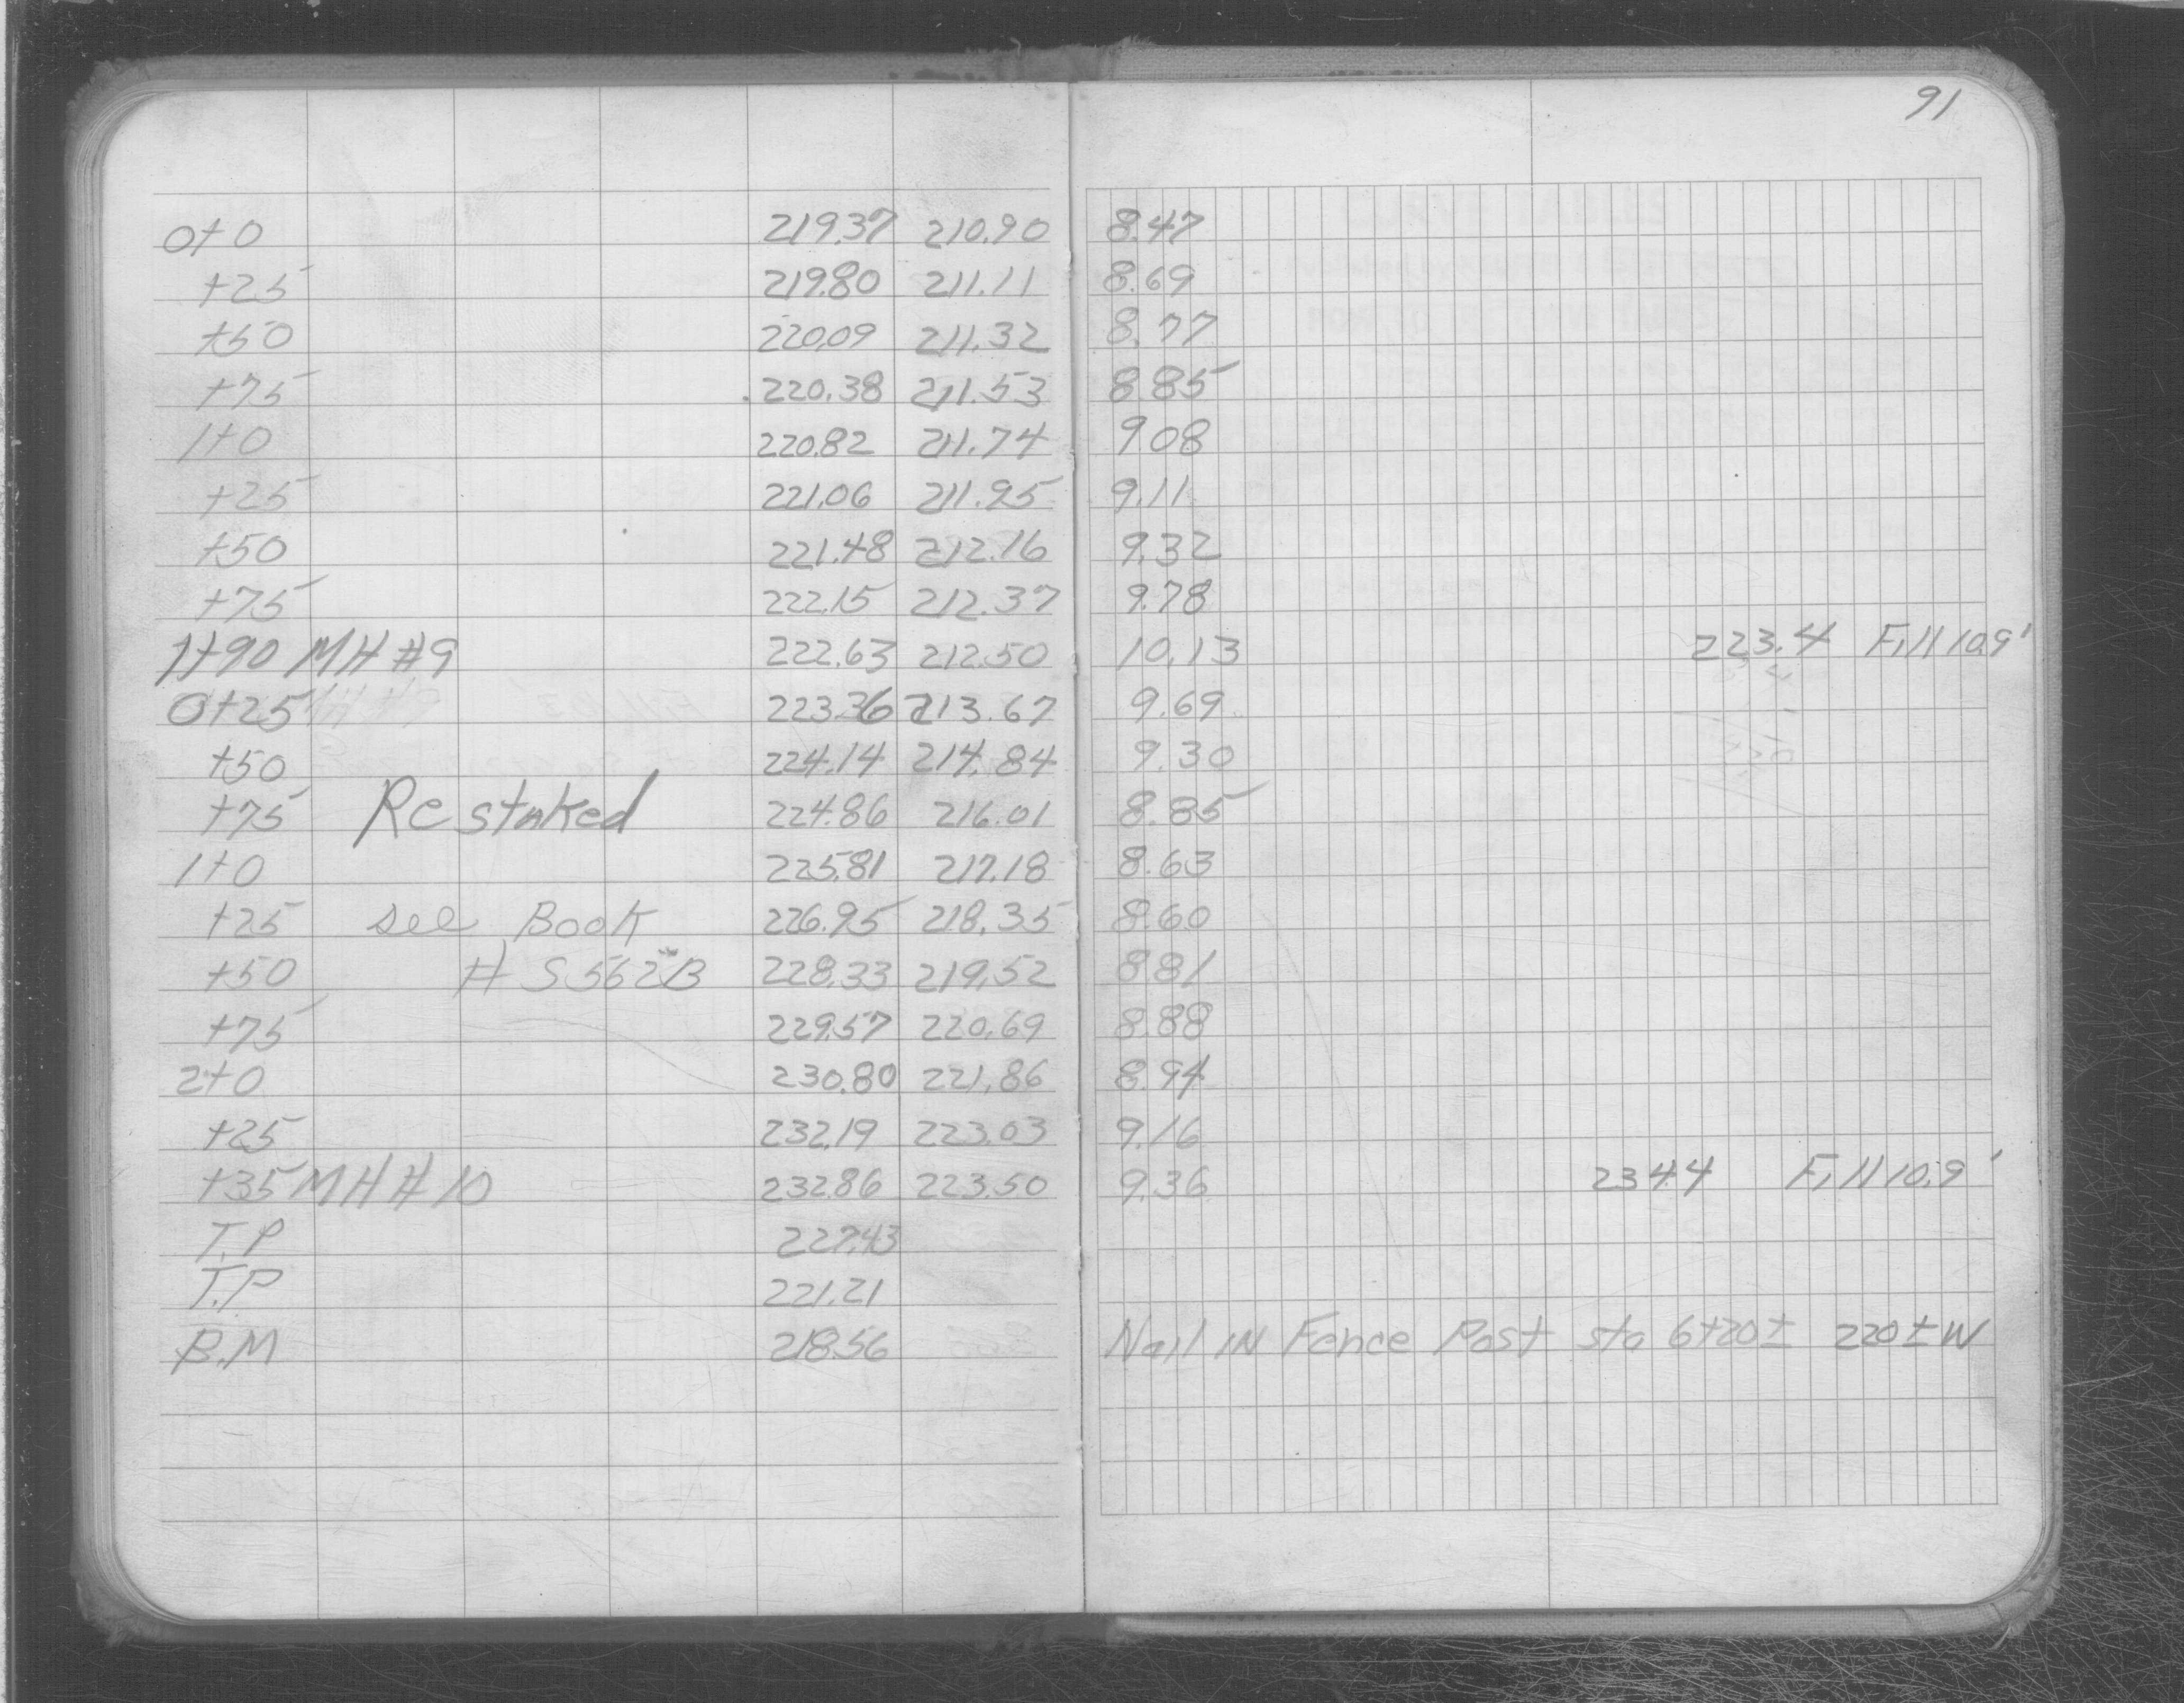 91
0+0 219.37 210.90 8.47
+25 219.80 211.11 8.69
+50 220.09 211.32 8.77
+75 220.38 211.53 8.85
1+0 220.82 211.74 9.08
+25 221.06 211.95 9.11
+50 221.48 212.16 9.32
+75 222.15 212.37 9.78
1+90 MH #9 222.63 212.50 10.13 223.4 Fill 10.9'
0+25 223.36 213.67 9.69
+50 224.14 214.84 9.30
+75 Re staked 224.86 216.01 8.85
1+0 225.81 217.18 8.63
+25 see Book 226.95 218.35 8.60
+50 # S562B 228.33 219.52 8.81
+75 229.57 220.69 8.88
2+0 230.80 221.86 8.94
+25 232.19 223.03 9.16
+35 MH # 10 232.86 223.50 9.36 234.4 Fill 10.9'
T.P 227.43
T.P 221.21
B.M 218.56 Nail IN Fence Post sta 6+20± 220±W